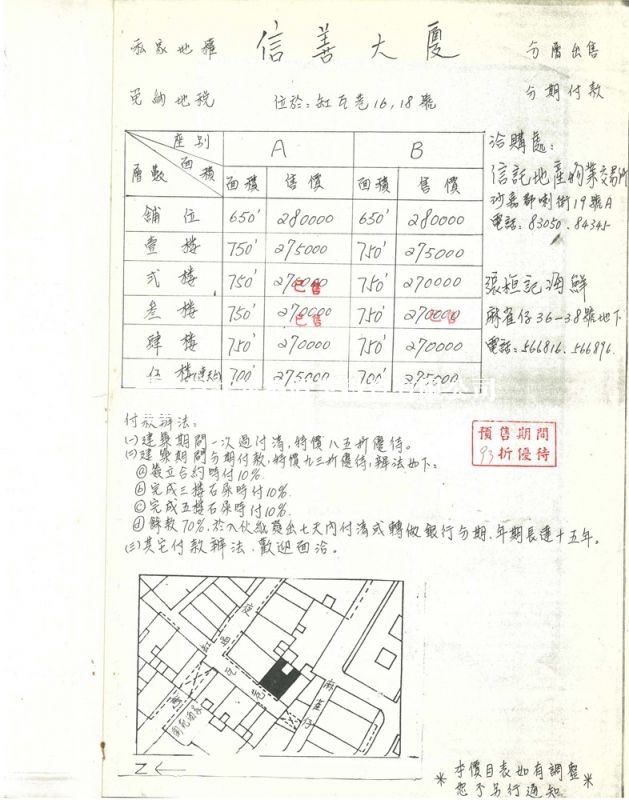 信善大廈
私家地權
分層出售
免納地稅
位於：缸瓦巷16,18號
分期付款
座別 面積 層數 A B
面積 售價 面積 售價
舖位 650' 280000 650' 280000
壹樓 750' 275000 750' 275000
弍樓 750' 270000 已售 750' 270000
叁樓 750' 270000 已售 750' 270000 已售
肆樓 750' 270000 750' 270000
伍樓(連天台) 700' 275000 700' 275000
洽購處：
信託地產物業交易所
沙嘉都喇街19號A
電話：83050．84345
張桓記海鮮
麻雀仔36-38號地下
電話：566816．566896．
付款辦法：
(一)建築期間一次過付清，特價八五折優待。
(二)建築期間分期付款，特價九三折優待，辦法如下：
ⓐ簽立合約時付10%
ⓑ完成三樓石屎時付10%
ⓒ完成五樓石屎時付10%
ⓓ餘款70%，於入伙紙發出七天內付清或轉做銀行分期，年期長達十五年。
(三)其它付款辦法，歡迎面洽。
預售期間
93折優待
缸瓦巷
麻雀仔
Z
*本價目表如有調整
恕不另行通知*